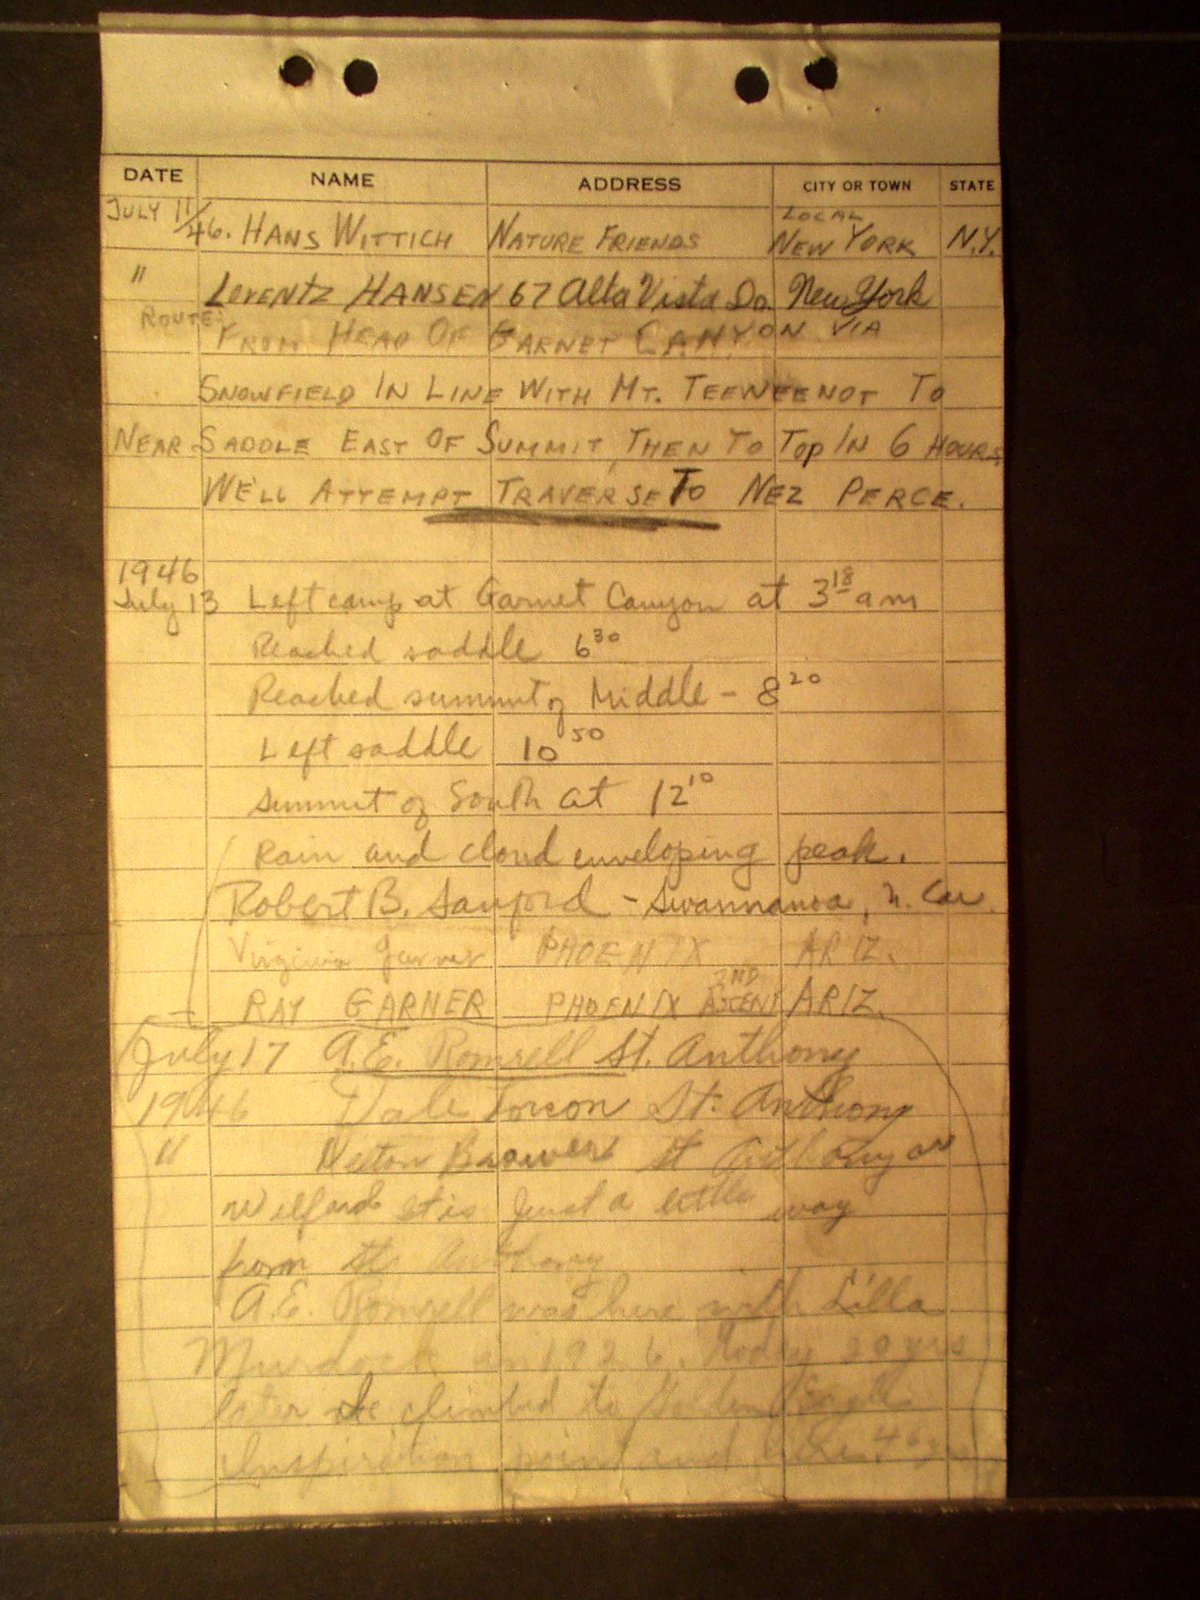 DATE NAME ADDRESS CITY OR TOWN STATE
JULY 11/46. HANS WITTICH NATURE FRIENDS LOCAL NEW YORK N.Y.
" LORENTZ HANSEN 67 Alta Vista Dr. New York
ROUTE: FROM HEAD OF GARNET CANYON VIA
SNOWFIELD IN LINE WITH MT. TEEWEENOT TO
NEAR SADDLE EAST OF SUMMIT, THEN TO TOP IN 6 HOURS
WE'LL ATTEMPT TRAVERSE TO NEZ PERCE.
1946
July 13 Left camp at Garnet Canyon at 3 18 am
Reached saddle 6 30
Reached summit of Middle - 8 20
Left saddle 10 50
Summit of South at 12 10
Rain and cloud enveloping peak.
Robert B. Sanford - Swannanoa, N. Car.
Virginia Garner PHOENIX ARIZ.
RAY GARNER PHOENIX 2ND ASCENT ARIZ.
July 17 A.E. Romrell St. Anthony
1946 Dale St. Anthony
" St Anthony or
Wilford it is just a little way
from St Anthony
A.E. Romrell was here with Lilla
Murdock in 1926. Today 20 yrs
later he climbed to Golden Eagle
Inspiration point and 46